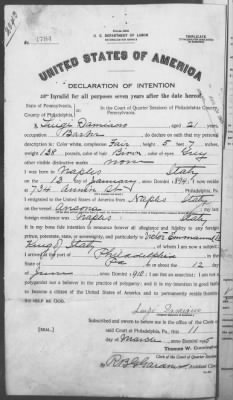 No. 1784
U. S. DEPARTMENT OF LABOR
TRIPLICATE
UNITED STATES OF AMERICA
DECLARATION OF INTENTION
Invalid for all purposes seven years after the date hereof
State of Pennsylvania,
County of Philadelphia,
In the Court of Quarter Sessions of Philadelphia County,
Pennsylvania.
I, Luigi Damiano, aged 21 years,
occupation Barber, do declare on oath that my personal
description is: Color white, complexion Fair, height 5 feet 7 inches,
weight 130 pounds, color of hair Brown, color of eyes Grey
other visible distinctive marks none
I was born in Naples Italy
on the 13 day of January, anno Domini 1894; I now reside
at 734 St., Philadelphia, Pa.
I emigrated to the United States of America from Naples Italy
on the vessel Ancona; my last
foreign residence was Naples Italy
It is my bona fide intention to renounce forever all allegiance and fidelity to any foreign
prince, potentate, state, or sovereignty, and particularly to
King of Italy, of whom I am now a subject;
I arrived at the port of Philadelphia, in the
State of Pa on or about the 12 day
of, anno Domini 1910; I am not an anarchist; I am not a
polygamist nor a believer in the practice of polygamy; and it is my intention in good faith
to become a citizen of the United States of America and to permanently reside therein:
SO HELP ME GOD.
Luigi Damiano
Subscribed and sworn to before me in the office of the Clerk of
said Court at Philadelphia, Pa., this 11
day of March, anno Domini 1915
[SEAL.]
Thomas W. Cunningham
Clerk of the Court of Quarter Sessions.